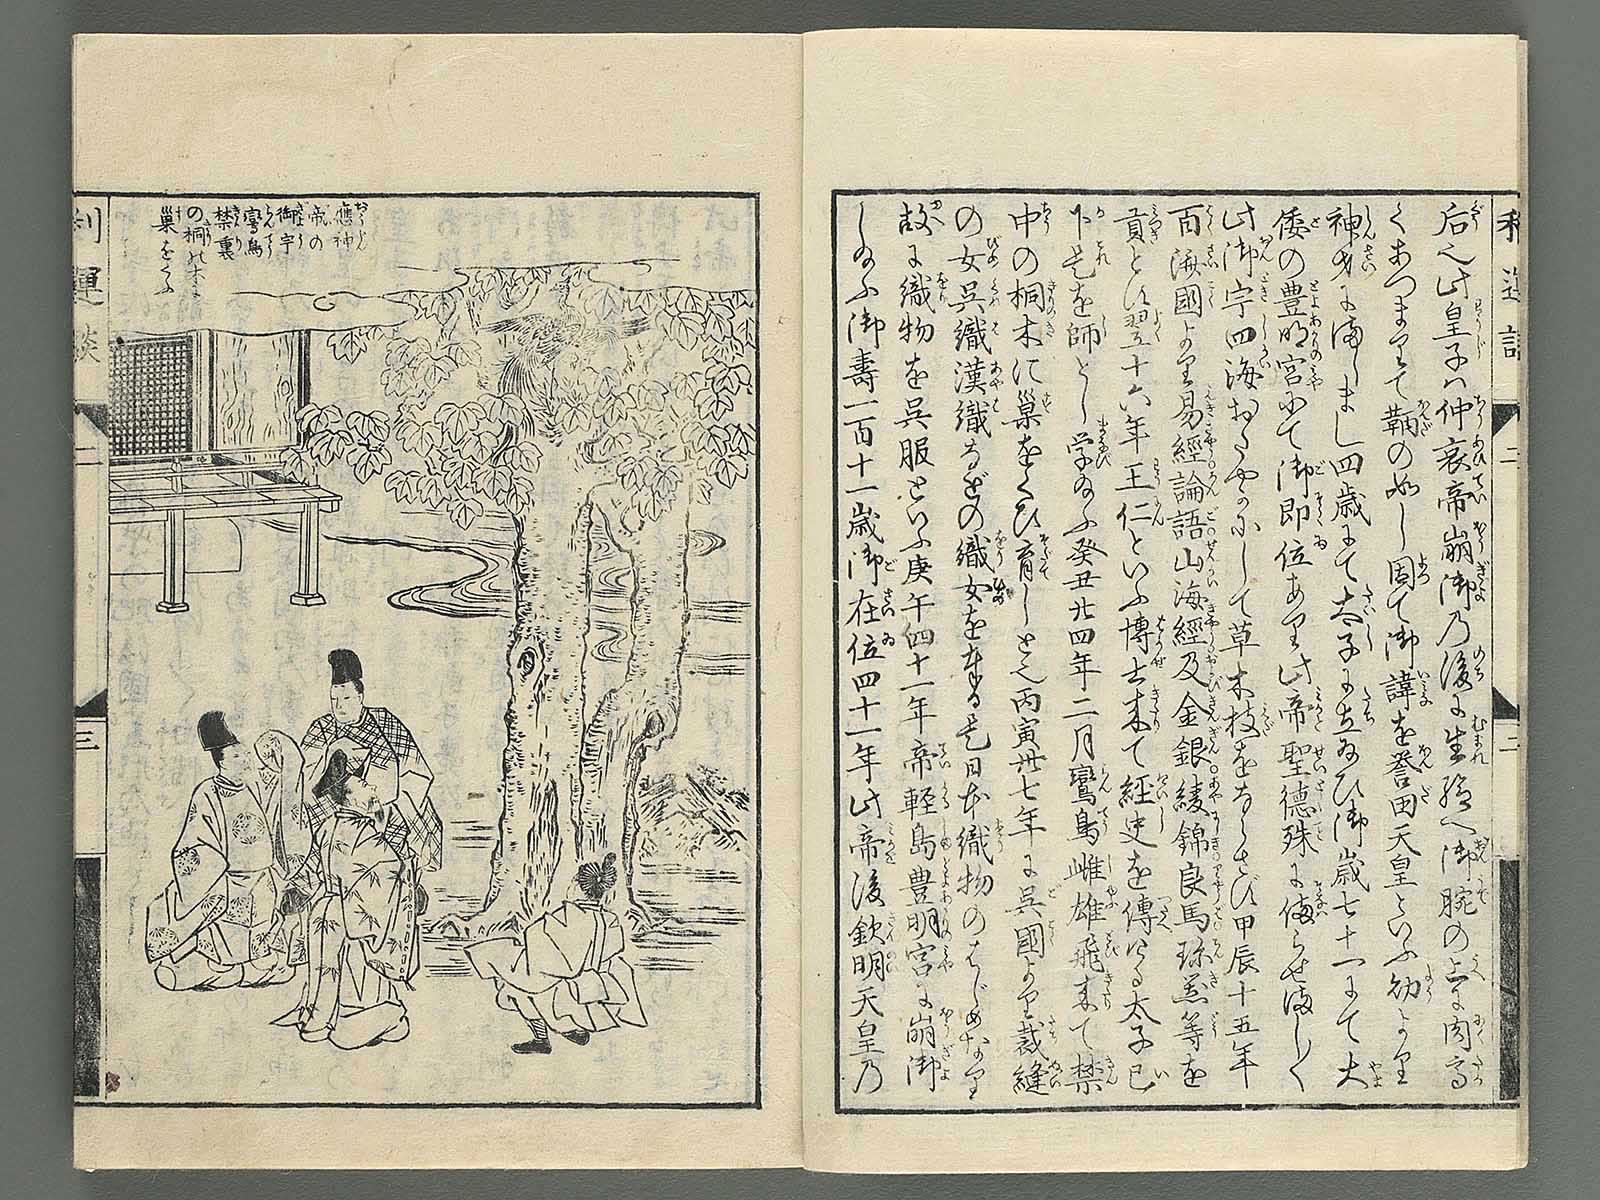 后也此皇子ハ仲哀帝崩御乃後に生給へ御腕の上に肉高
くあつまりて鞆の如し因て御諱を誉田天皇といふ幼より
神才にましまし四歳にて太子に立給ひ御歳七十一にて大
倭の豊明宮にて御即位あり此帝聖徳殊に備らせましく
此御宇四海おだやかにして草木枝をならさず甲辰十五年
百済國より易經論語山海經及金銀綾錦良馬珍羔等を
貢とす翌十六年王仁といふ博士来て経史を傳ける太子已
下是を師とし学給ふ癸丑廿四年二月鸞鳥雌雄飛来て禁
中の桐木に巣をくひ育しと也丙寅卅七年に呉國より裁縫
の女呉織漢織などの織女を奉る是日本織物のはじめなり
故に織物を呉服といふ庚午四十一年帝軽島豊明宮に崩御
し給ふ御壽一百十一歳御在位四十一年此帝後欽明天皇乃
二
利運談
三
應神
帝の
御宇
鸞鳥
禁裏
の桐の木に
巣をくふ